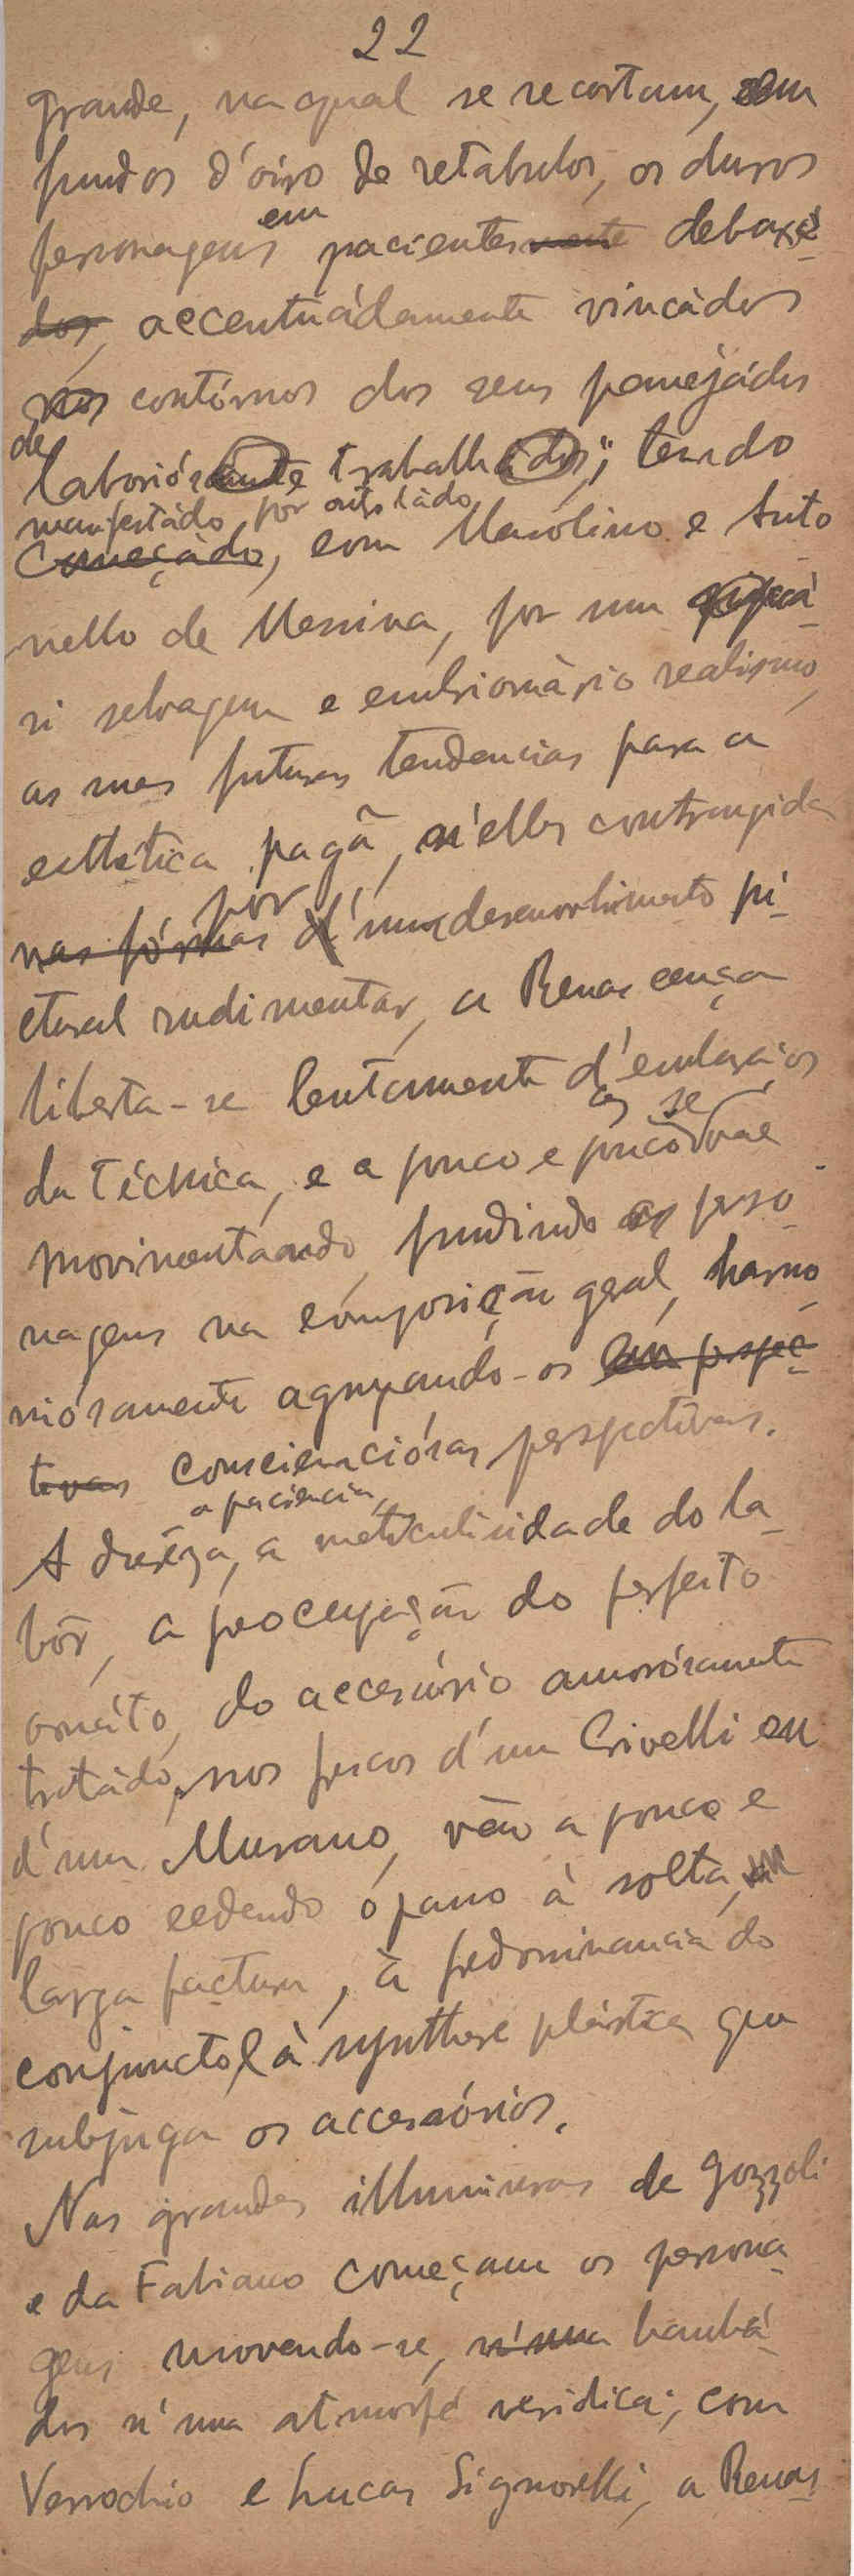 22
grande, na qual se recortam, sem
fundos d'oiro de retabulos, os duros
personagens em pacientesmente debaxe
dos, accentuádamente vincàdos
nos contórnos dos seus panejádos
de laboriósamente trabalhados; tendo
manifestádo por outro ládo
Começàdo, com Masolino e Anto
nello de Messina, por um quasi
si selvagem e embrionàrio realismo,
as suas futuras tendencias para a
esthética pagã, n'elles contrangida
por
nas fórmas d'um desenvolvimento pi-
ctural rudimentar, a Renascença
liberta-se lentamente d'embaraços
da téchnica, e a pouco e pouco se vae
movimentando, fundindo os perso-
nagens na composição geral, harmo-
niósamente agrupando-os em prspec-
tivas conscienciósas perspectivas.
a paciencia,
A dureza, a meticulisidade do la-
bôr, a preoccupação do perfeito
ornáto, do accessório amorósamente
tratádo, nos frescos d'um Crivelli ou
d'um Murano, vão a pouco e
pouco cedendo ó pano à solta,
larga factura, à predominancia do
conjuncto, à synthese plástica que
subjuga os accessórios.
Nas grandes illuminuras de Gozzoli
e da Fabiano começam os persona-
gens movendo-se, n'uma banhá-
dos n'uma atmosfé veridica; com
Verrochio e Lucas Signorelli, a Renas-